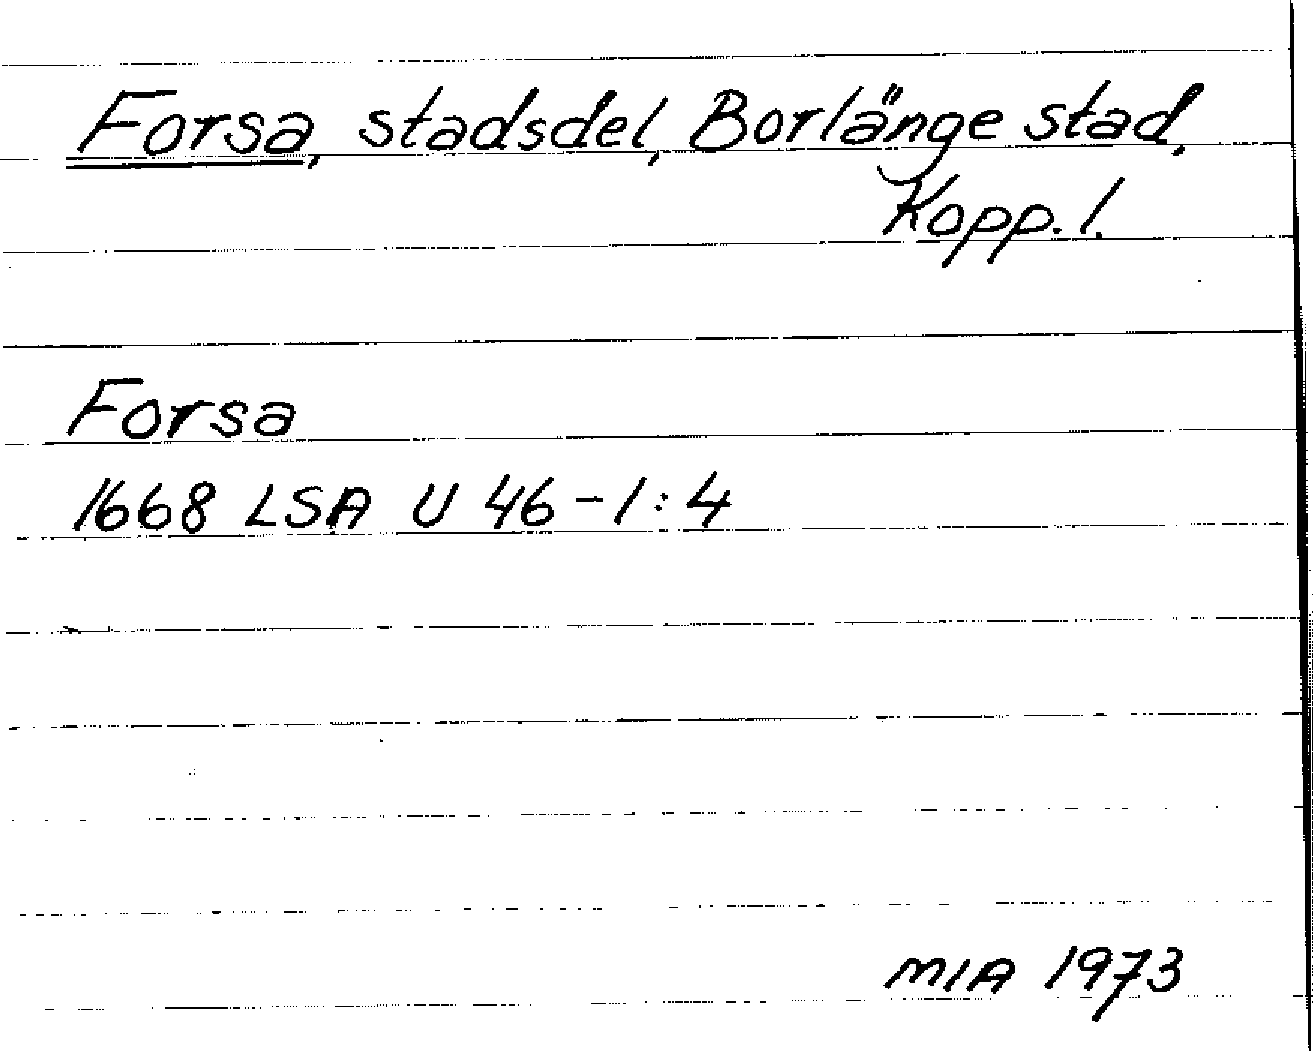 Forsa, stadsdel, Borlänge stad,
Kopp. l.
Forsa
1668 LSA U 46-1:4
MIA 1973